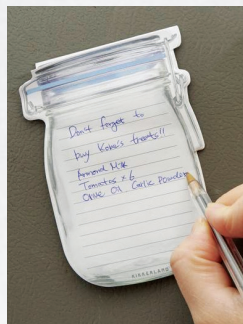 Don't forget to
buy Koba's treats!!
Almond Milk
Tomatos x 6
Olive Oil Garlic Powder
KIKKERLAND